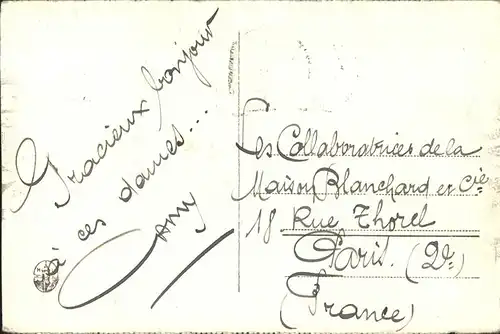 Gracieux bonjour
à ces dames...
Les Collaboratrices de la
Maison Blanchard et Cie
18 Rue Thorel
Paris. (2e)
(France)